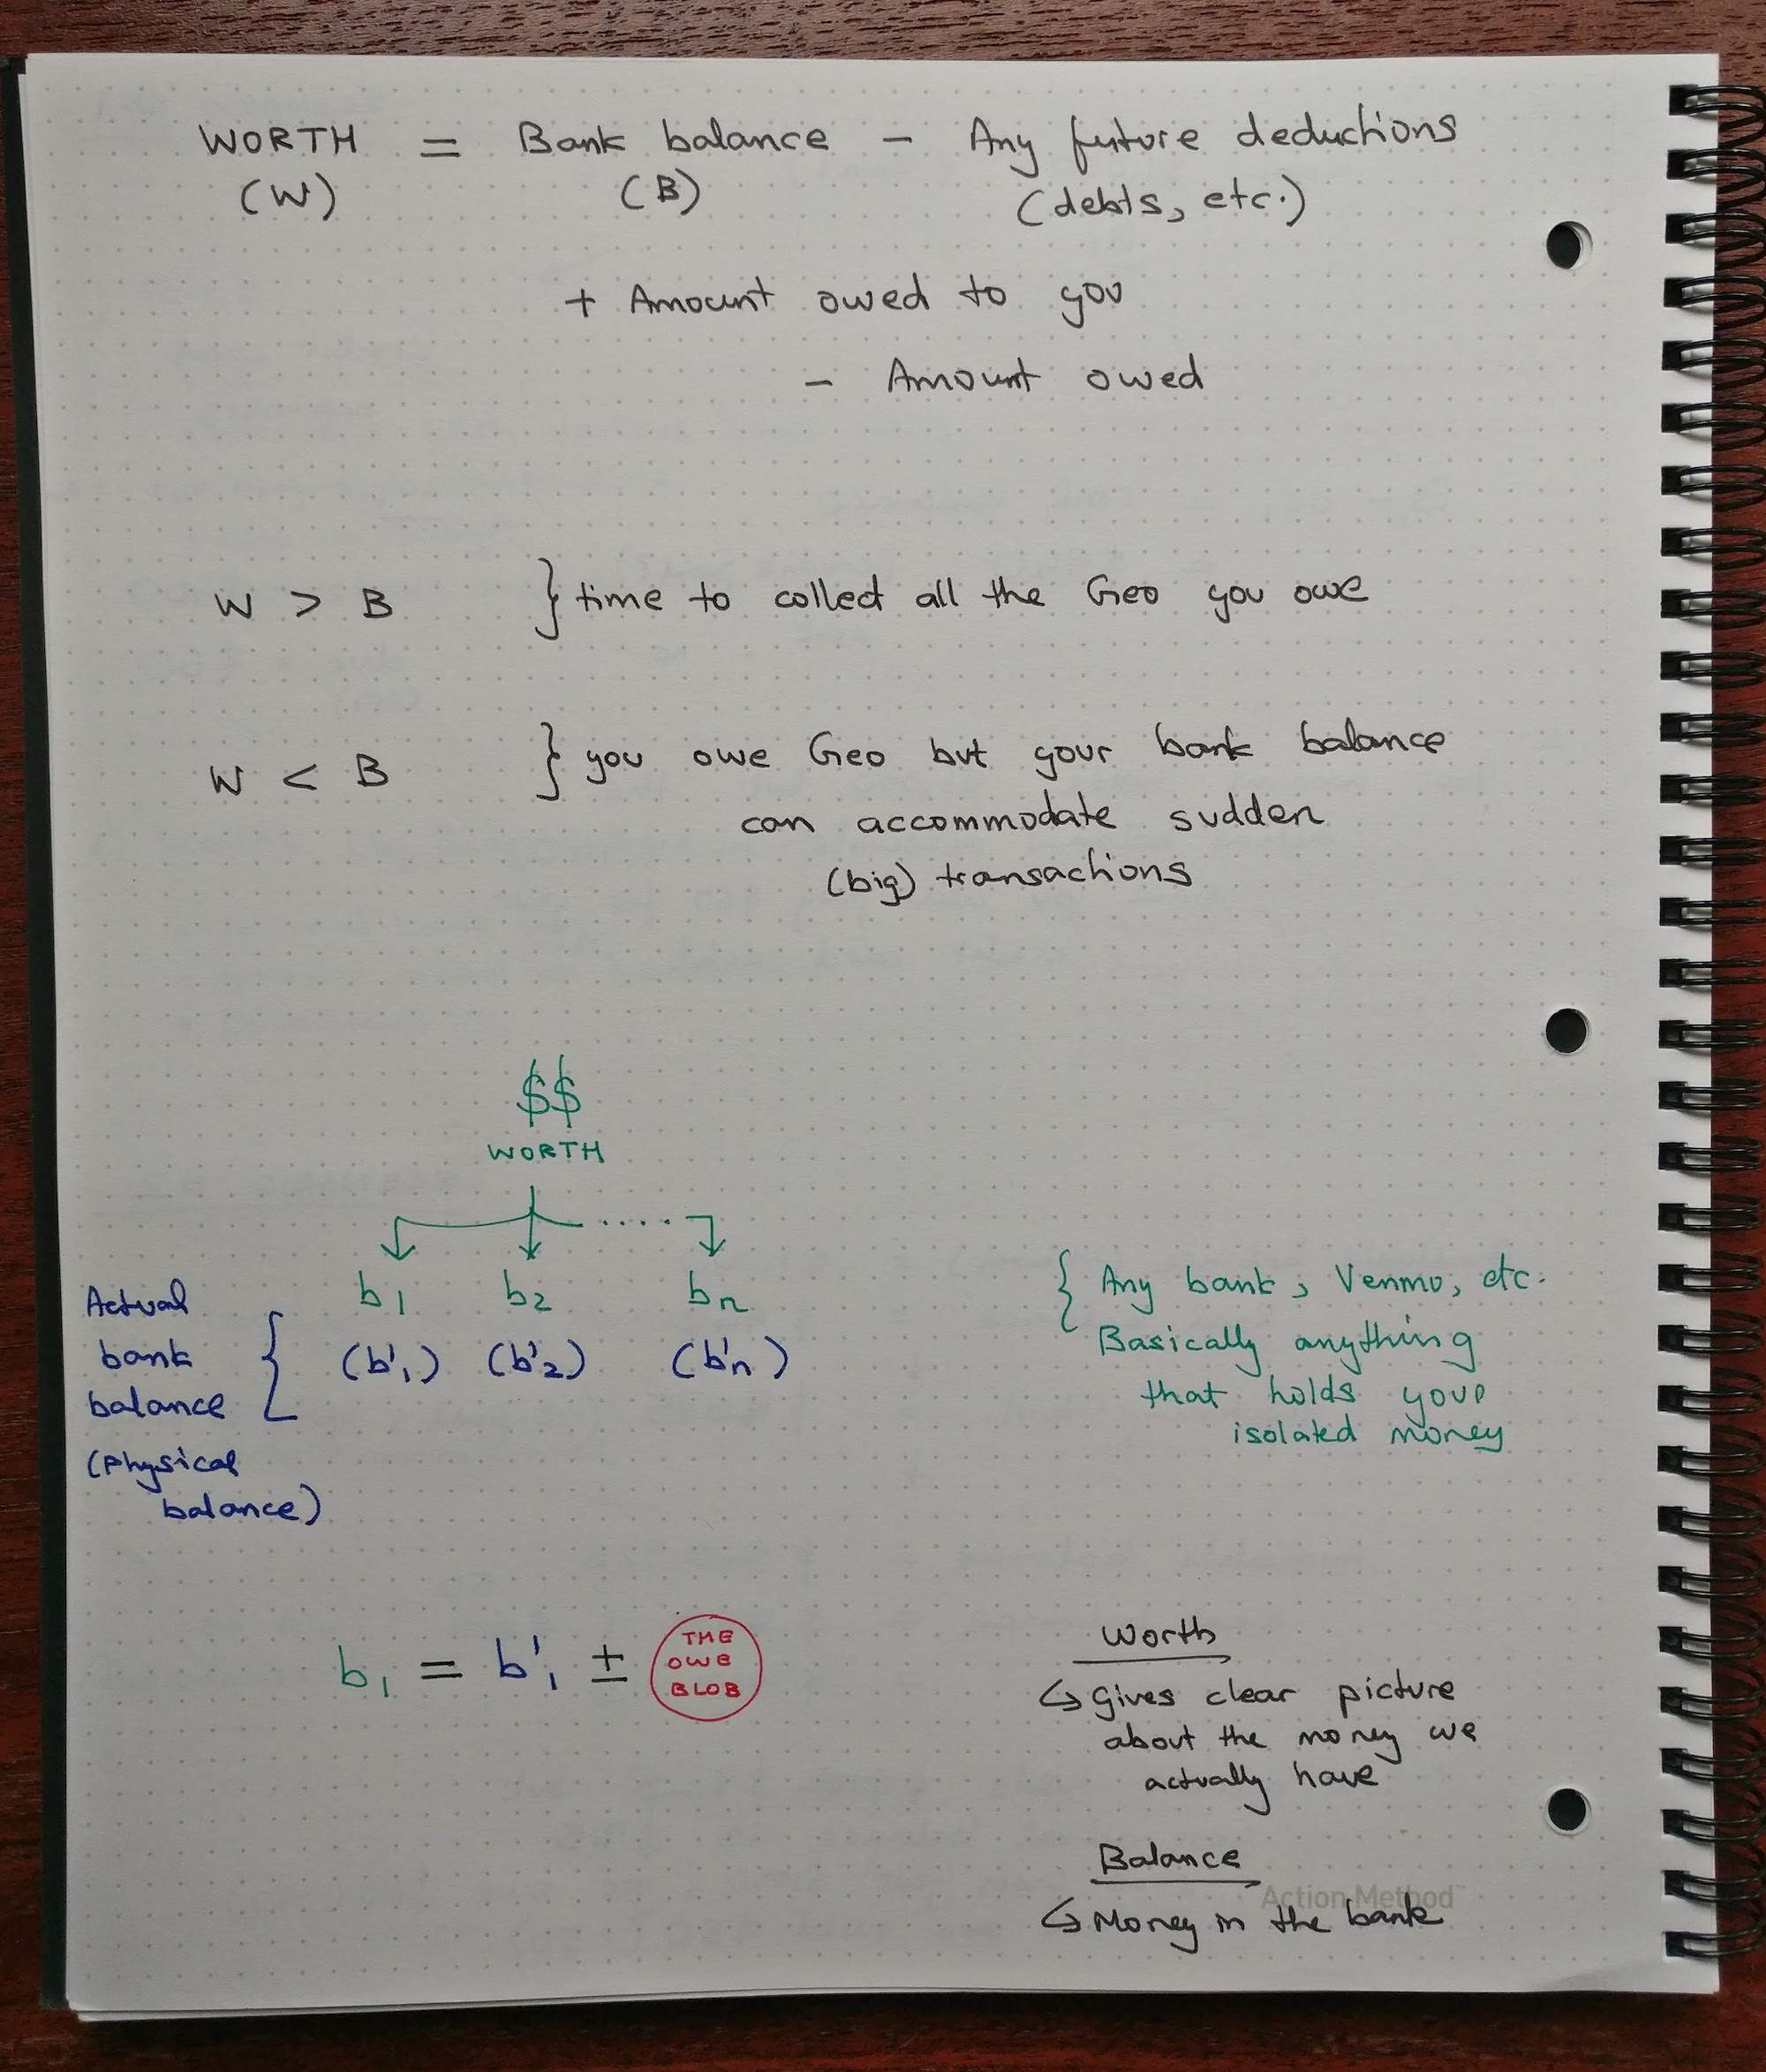 WORTH = Bank balance - Any future deductions
(W) (B) (debts, etc.)
+ Amount owed to you
- Amount owed
W > B } time to collect all the Geo you owe
W < B } you owe Geo but your bank balance
can accommodate sudden
(big) transactions
$$
WORTH
....
b1 b2 bn
Actual
bank
balance
(physical
balance)
{ (b'1) (b'2) (b'n)
{ Any bank, Venmo, etc.
Basically anything
that holds your
isolated money
b1 = b'1 ± THE
OWE
BLOB
Worth
↳ Gives clear picture
about the money we
actually have
Balance
Action Method™
↳ Money in the bank